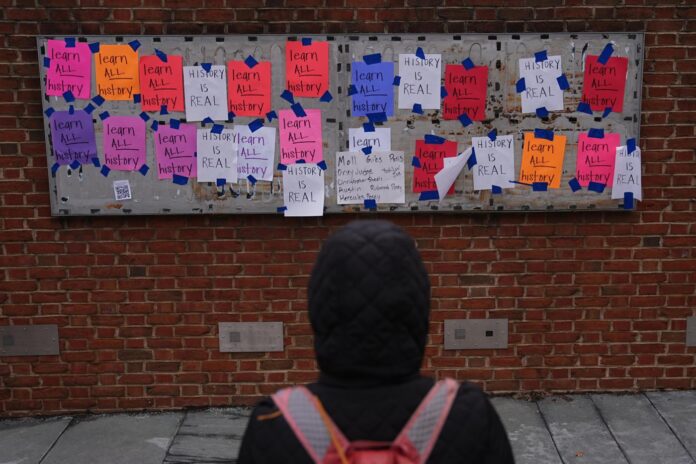 learn
ALL
history
learn
ALL
history
learn
ALL
history
HISTORY
IS
REAL
learn
ALL
history
learn
ALL
history
learn
ALL
history
HISTORY
IS
REAL
learn
ALL
history
HISTORY
IS
REAL
learn
ALL
history
learn
ALL
history
learn
ALL
history
learn
ALL
history
HISTORY
IS
REAL
learn
ALL
history
learn
ALL
history
HISTORY
IS
REAL
HISTORY
IS
REAL
Moll Giles Paris
Oney Judge
Christopher
Austin Richmond
Hercules Posey
learn
ALL
history
HISTORY
IS
REAL
learn
ALL
history
learn
ALL
history
HISTORY
IS
REAL